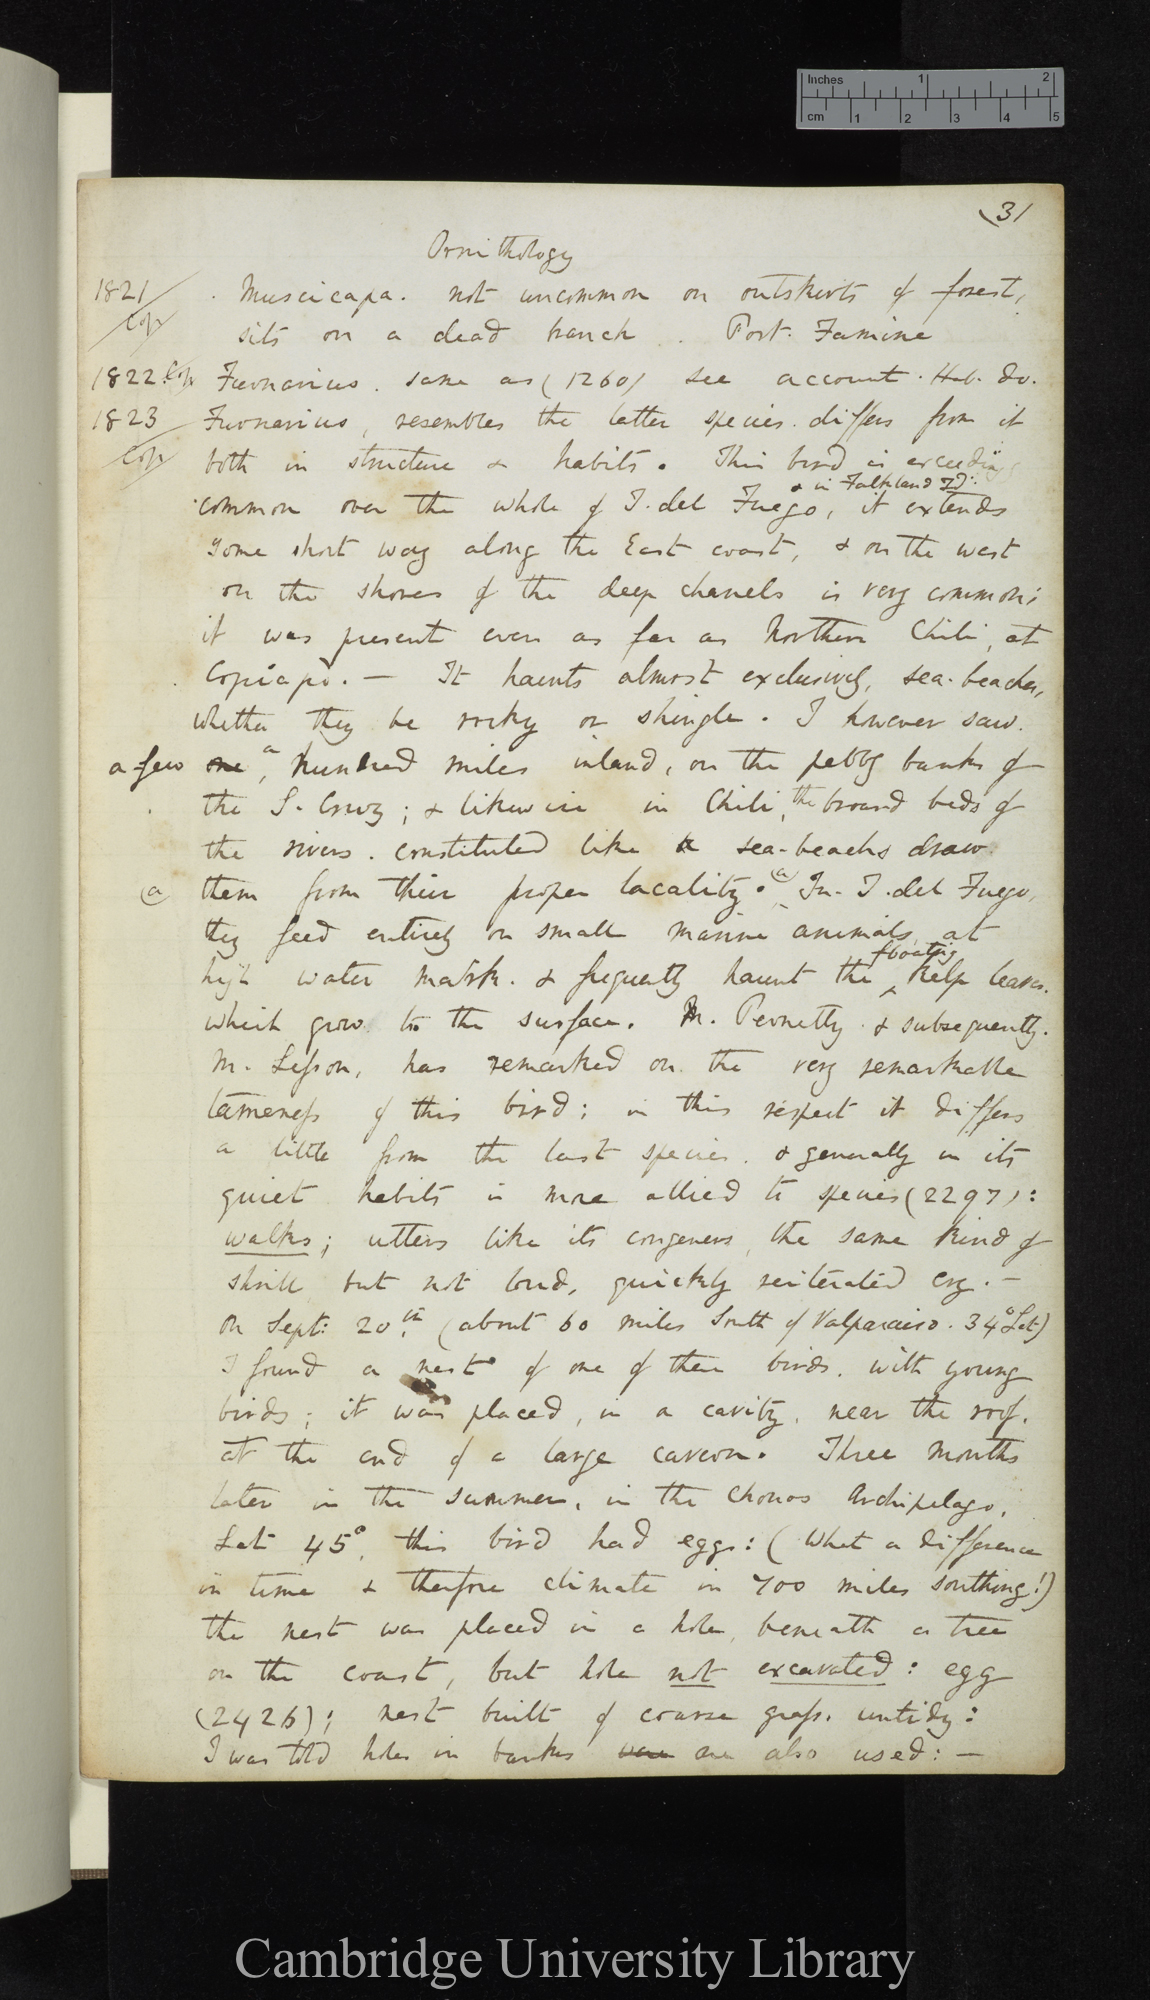 Inches 1 2
cm 1 2 3 4 5
(31
Ornithology
1821 Muscicapa. not uncommon on outskirts of forest,
Cop. sits on a dead branch. Port. Famine
1822 Cop. Furnarius. same as (1260) see account. Hab. do.
1823 Furnarius, resembles the latter species. differs from it
Cop. both in structure & habits. This bird is exceeding
& in Falkland Id:
common over the whole of T. del Fuego, it extends
some short way along the East coast, & on the west
on the shores of the deep chanels is very common;
it was present even as far as Northern Chili, at
Copiapò. — It haunts almost exclusively, sea-beaches,
whether they be rocky or shingle. I however saw.
a few one a hundred miles inland, on the pebbly banks of
the S. Cruz; & likewise in Chili, the broard beds of
the rivers. constituted like sea-beachs draw
(a) them from their proper locality. (a) In. T. del Fuego,
they feed entirely on small marine animals, at
high water mark. & frequently haunt the floating Kelp leaves.
which grow to the surface. M. Pernetty & subsequently.
M. Lesson, has remarked on the very remarkable
tameness of this bird; in this respect it differs
a little from the last species. & generally in its
quiet habits is more allied to species (2297):
walks; utters like its congeners, the same kind of
shrill but not loud, quickly reiterated cry. —
On Sept: 20th. (about 60 miles South of Valparaiso. 34° Lat)
I found a nest of one of these birds. with young
birds; it was placed, in a cavity, near the roof.
at the end of a large cavern. Three months
later in the summer, in the Chonos Archipelago,
Lat 45°, this bird had eggs: (What a difference
in time & therfore climate in 700 miles southing!)
the nest was placed in a hole, beneath a tree
on the coast, but hole not excavated: egg
(2426); nest built of coarse grass. untidy:
I was told holes in banks are also used: —
Cambridge University Library